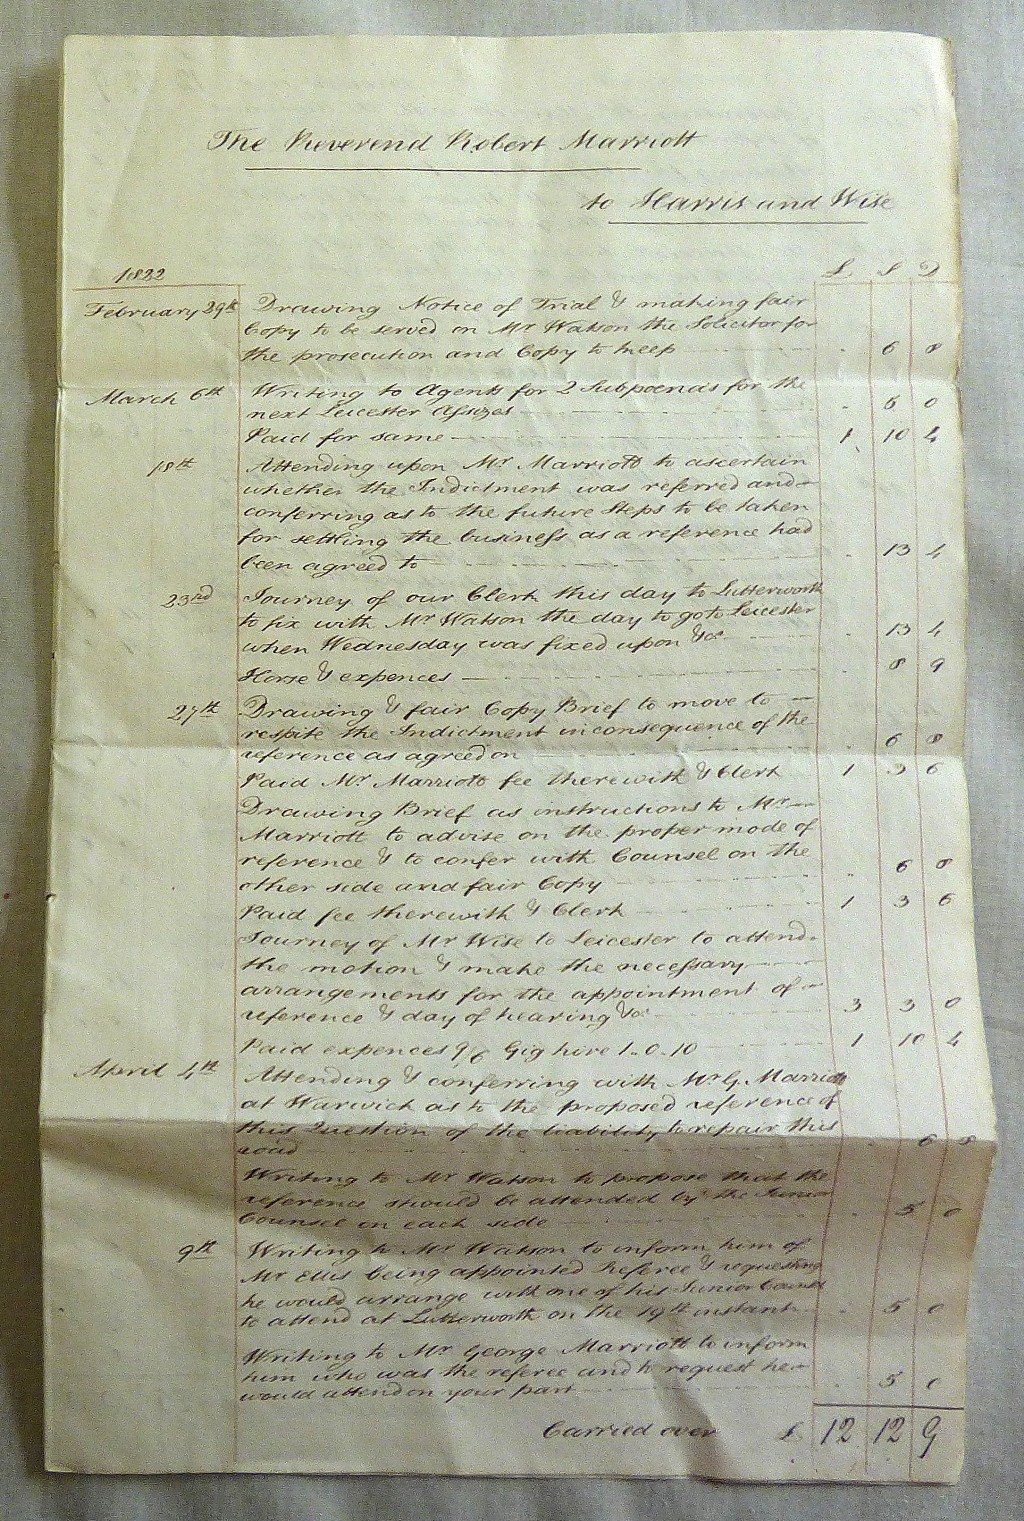 The Reverend Robert Marriott
to Harris and Wise
1822 £ S D
February 29th Drawing Notice of Trial & making fair
Copy to be served on Mr Watson the Solicitor for
the prosecution and Copy to keep . 6 8
March 6th Writing to Agents for 2 Subpoenas for the
next Leicester Assizes . 5 0
Paid for same 1 10 4
18th Attending upon Mr Marriott to ascertain
whether the Indictment was referred and
conferring as to the future Steps to be taken
for settling the business as a reference had
been agreed to . 13 4
23rd Journey of our Clerk this day to Lutterworth
to fix with Mr Watson the day to go to Leicester
when Wednesday was fixed upon &c . 13 4
Horse & expences 8 9
27th Drawing & fair Copy Brief to move to
respite the Indictment in consequence of the
reference as agreed on . 6 8
Paid Mr Marriott fee therewith & Clerk 1 3 6
Drawing Brief as instructions to Mr
Marriott to advise on the proper mode of
reference & to confer with Counsel on the
other side and fair Copy . 6 8
Paid fee therewith & Clerk 1 3 6
Journey of Mr Wise to Leicester to attend
the motion & make the necessary
arrangements for the appointment of
reference & day of hearing &c 3 3 0
Paid expences 9/6 Gig hire 1.0.10 1 10 4
April 4th Attending & conferring with Mr G. Marriott
at Warwick as to the proposed reference of
this Question of the liability to repair this
road . 6 8
Writing to Mr Watson to propose that the
reference should be attended by the Junior
Counsel on each side . 5 0
9th Writing to Mr Watson to inform him of
Mr Ellis being appointed Referee & requesting
he would arrange with one of his Junior Counsel
to attend at Lutterworth on the 19th instant . 5 0
Writing to Mr George Marriott to inform
him who was the referee and to request he
would attend on your part . 5 0
Carried over £ 12 12 9